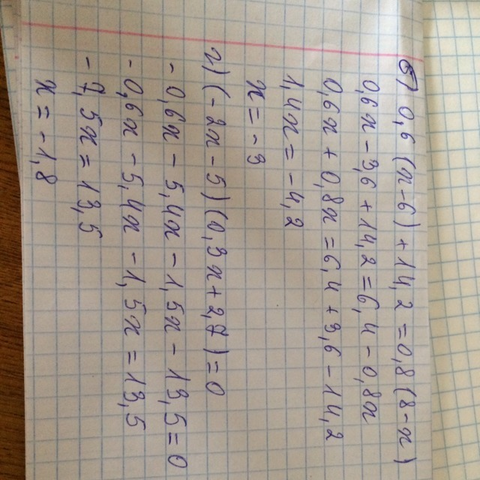 б) 0,6(x-6)+14,2=0,8(8-x)
0,6x-3,6+14,2=6,4-0,8x
0,6x+0,8x=6,4+3,6-14,2
1,4x=-4,2
x=-3
г) (-2x-5)(0,3x+2,7)=0
-0,6x-5,4x-1,5x-13,5=0
-0,6x-5,4x-1,5x=13,5
-7,5x=13,5
x=-1,8